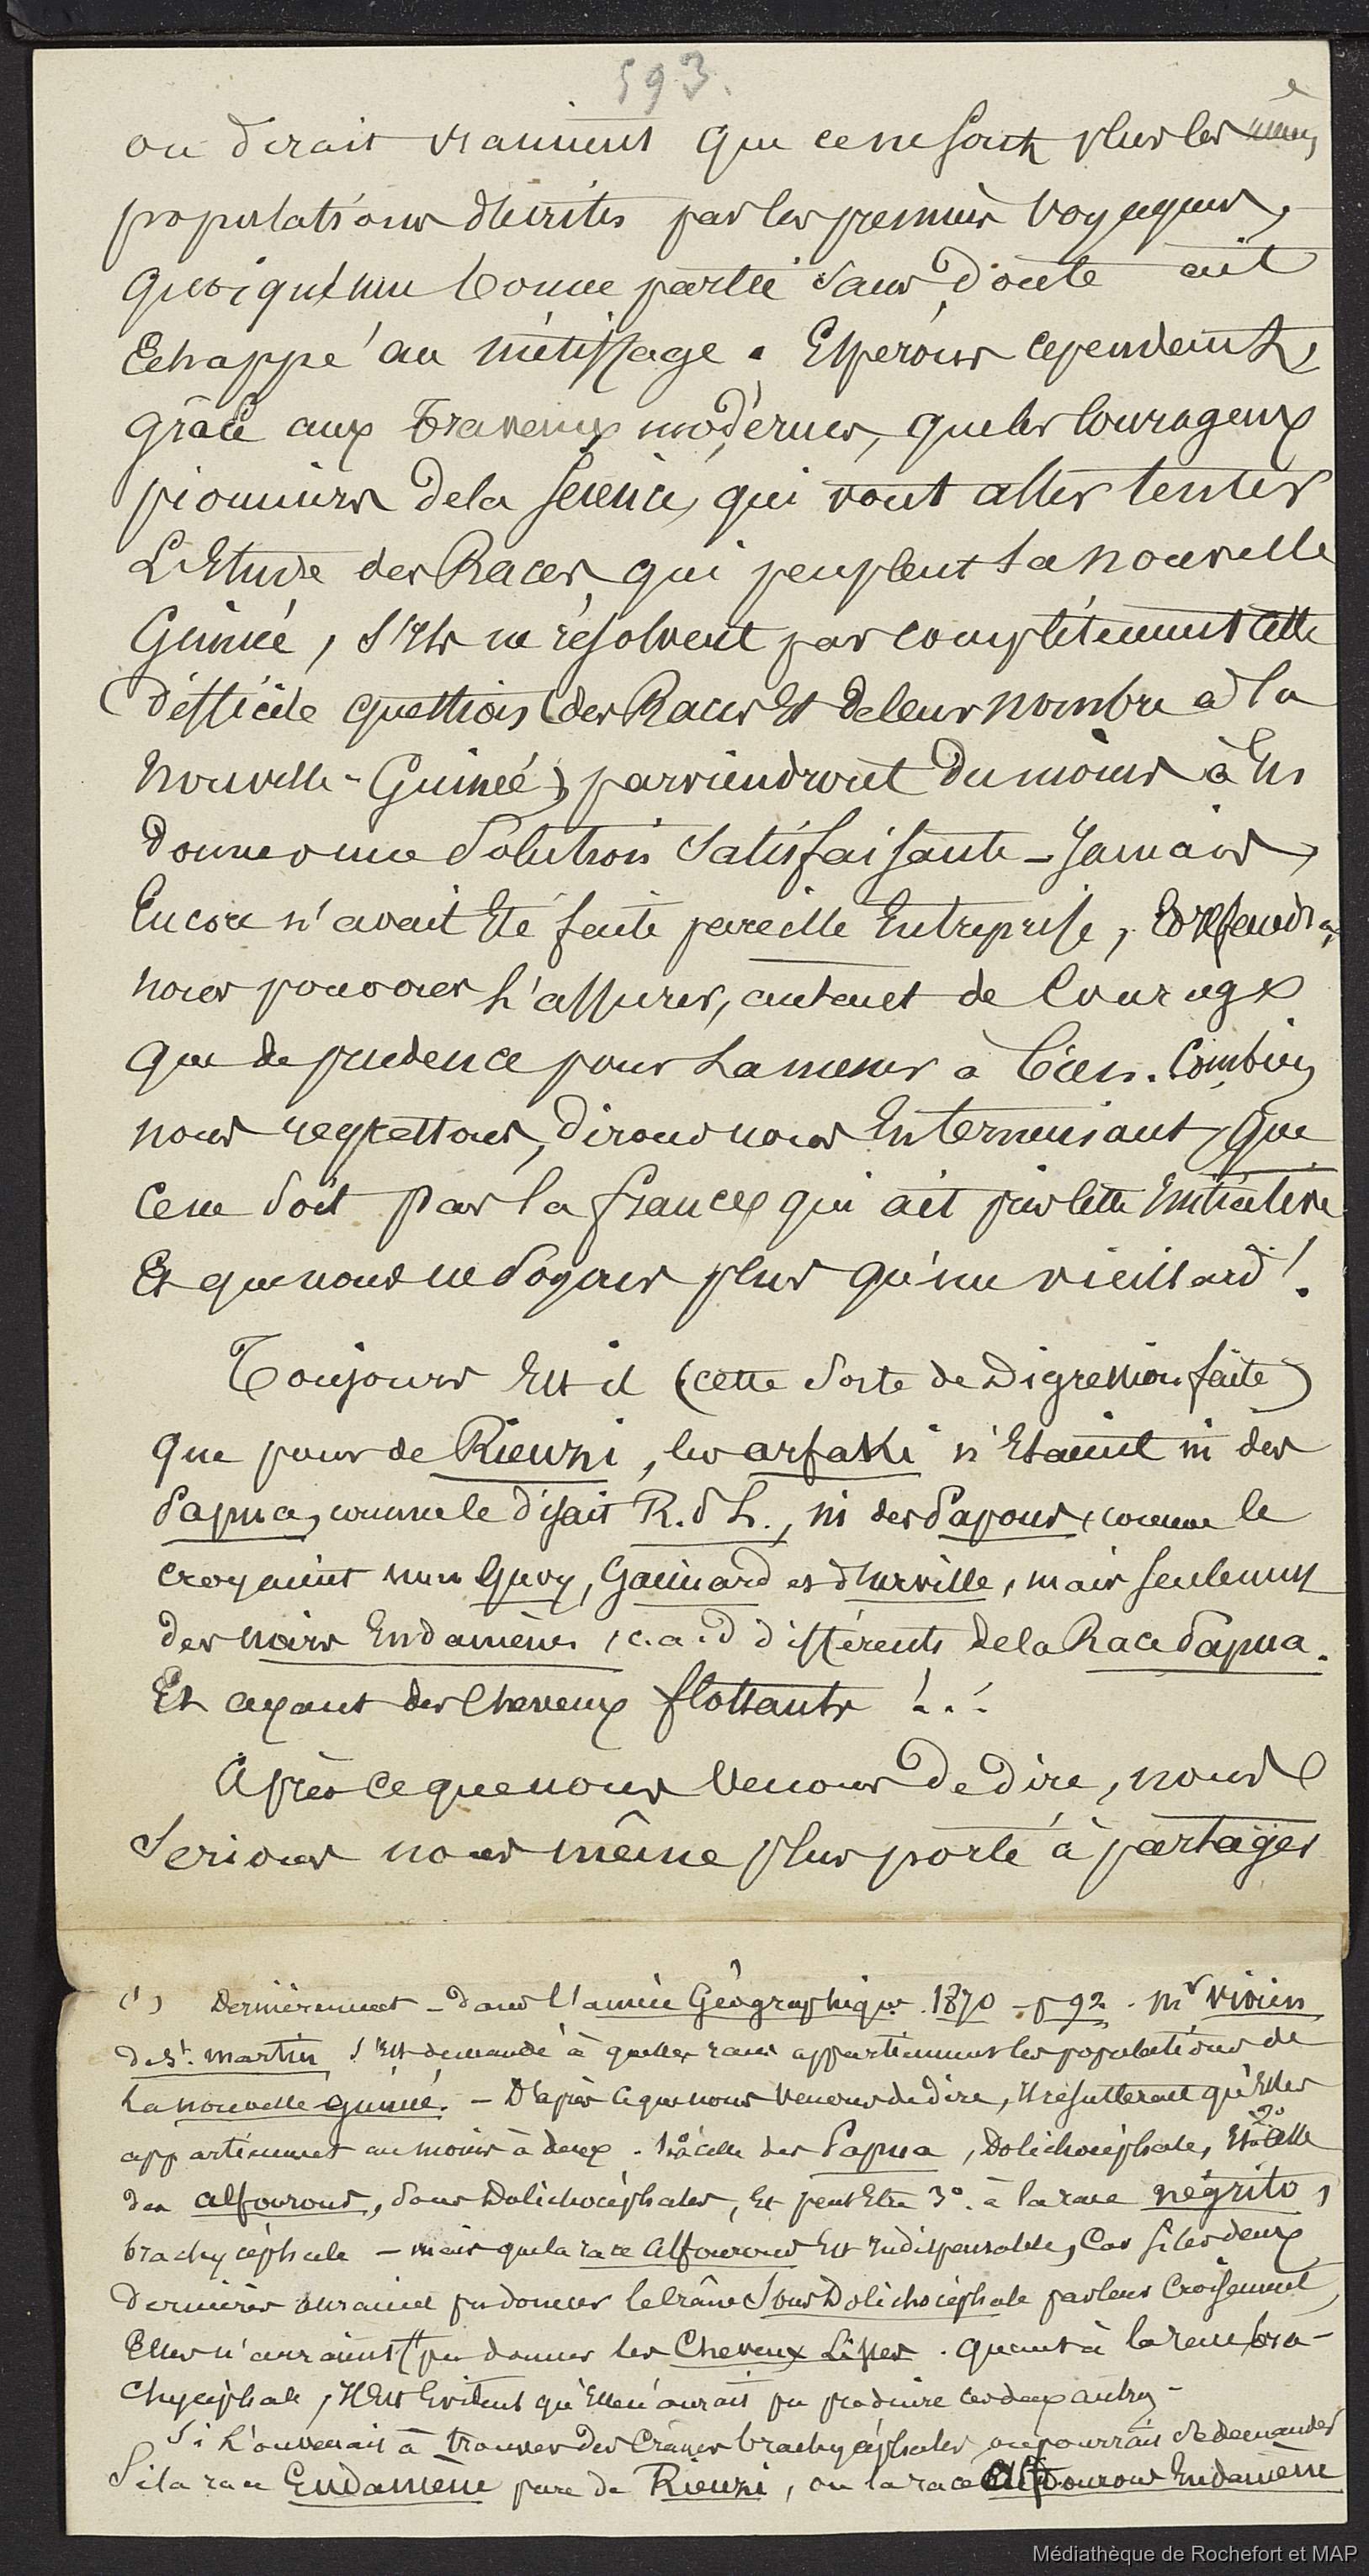 593.
on dirait vraiment que ce ne sont plus les mêmes
populations décrites par les premiers voyageurs,
quoiqu'une bonne partie sans doute ait
Echappé au métissage. Espérons cependant,
grâce aux travaux modernes, que les courageux
pionniers de la science, qui vont aller tenter
L'Etude des Races qui peuplent La nouvelle
Guinée, s'ils ne résolvent pas complètement cette
difficile question (des Races Et de leur nombre à la
Nouvelle-Guinée) parviendront du moins à En
donner une Solution Satisfaisante - Jamais,
Encore n'avait Eté faite pareille Entreprise, Et il faudra,
nous pouvons L'assurer, autant de Courage
que de prudence pour La mener à bien. Combien
nous regrettons, dirons nous En terminant, que
ce ne soit pas la france qui ait pris cette Initiative
Et que nous ne soyons plus qu'un vieillard !
Toujours Est il (cette sorte de Digression faite)
que pour de Rienzi, les arfaki n'Etaient ni des
Papua, comme le disait R. d L., ni des Papous, comme le
croyaient MM Quoy, Gaimard et d'urville, mais seulement
des noirs Endamènes, c.a.d différents de la Race Papua.
Et ayant des Cheveux flottants !..!
Après ce que nous Venons De dire, nous
Serions nous même plus porté à partager
(1) Dernièrement - dans l'année Géographique 1870 - p 92. Mr Vivien
de St. martin s'Est demandé à quelles races appartiennent les populations de
La nouvelle guinée. - D'après ce que nous Venons de dire, Il resulterait qu'Elles
appartiennent au moins à deux. 1o à celle des Papua, Dolichocéphale, Et 2o à celle
des alfourous, sous Dolichocéphales, Et peut Etre 3o. à la race négrito,
brachycéphale - mais que la race alfourous Est Indispensable, Car si les deux
dernières auraient pu donner le Crâne Sous Dolichocéphale par leur Croisement,
Elles n'auraient pu donner les Cheveux Lisses. Quant à la race bra-
chycéphale, Il Est Evident qu'Elle n'aurait pu produire les deux autres -
Si L'on venait à trouver des Crânes brachycéphales, on pourrait se demander
Si la race Endamène pure de Rienzi, ou la race Alfourous Endamène
Médiathèque de Rochefort et MAP